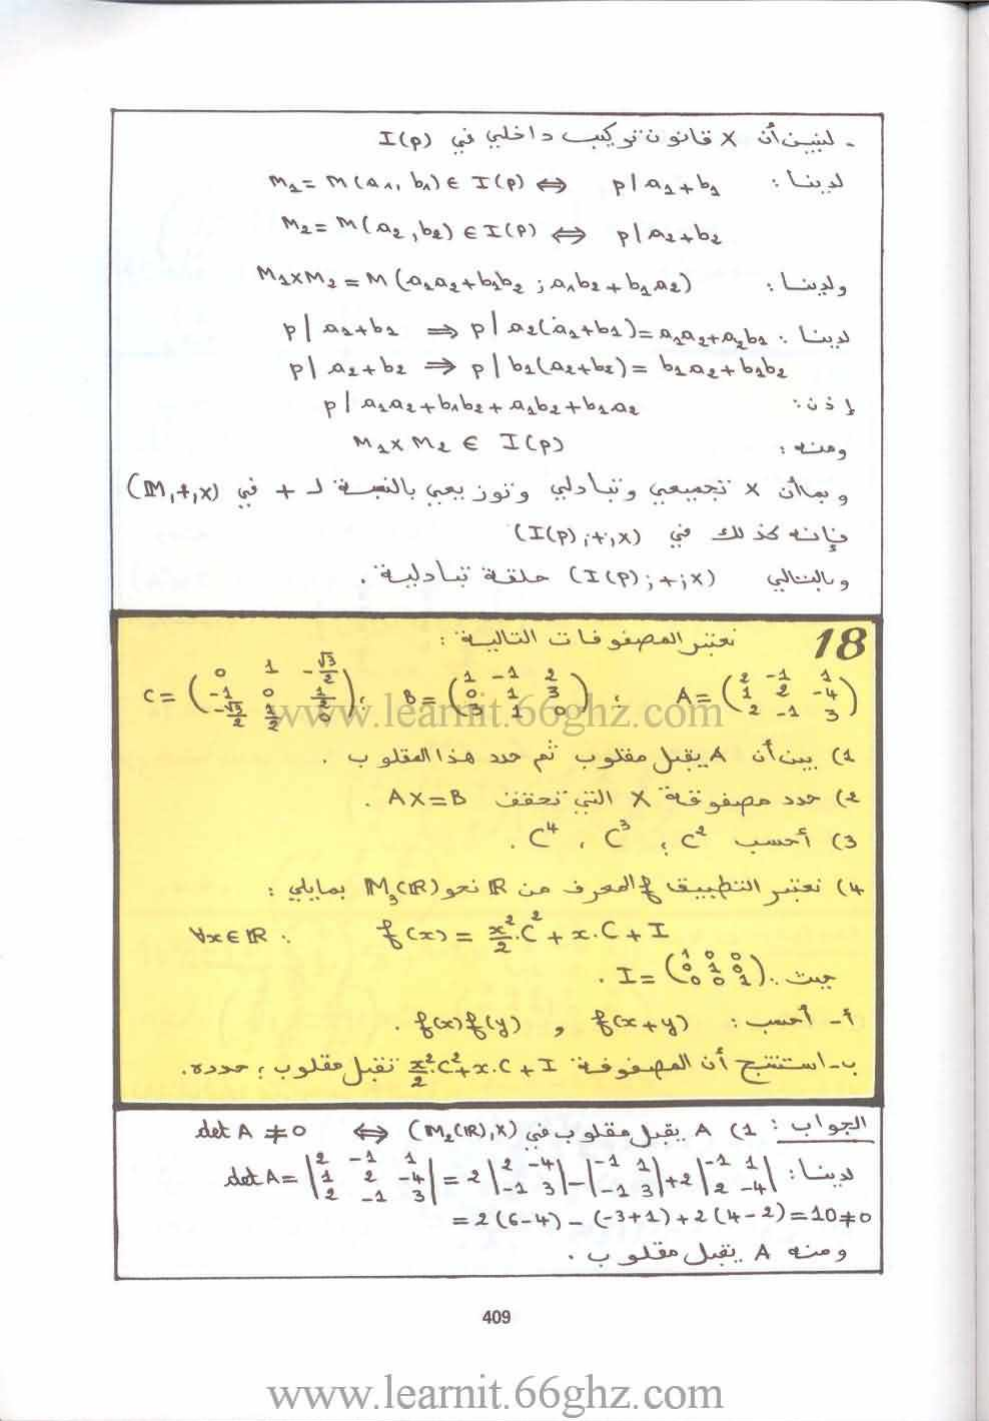 - لنبين أن × قانون تركيب داخلي في I(p)
لدينا : M₁ = M(a₁, b₁) ∈ I(p) ⇔ p | a₁+b₁
M₂ = M(a₂, b₂) ∈ I(p) ⇔ p | a₂+b₂
ولدينا : M₁×M₂ = M(a₁a₂+b₁b₂ ; a₁b₂+b₁a₂)
لدينا : p | a₁+b₁ ⇒ p | a₂(a₁+b₁) = a₁a₂+a₂b₁
p | a₂+b₂ ⇒ p | b₁(a₂+b₂) = b₁a₂+b₁b₂
إذن : p | a₁a₂+b₁b₂+a₁b₂+b₁a₂
ومنه : M₁×M₂ ∈ I(p)
و بما أن × تجميعي وتبادلي وتوزيعي بالنسبة لـ + في (M,+,×)
فإنه كذلك في (I(p);+;×)
وبالتالي (I(p);+;×) حلقة تبادلية .
18 نعتبر المصفوفات التالية :
A = (2 -1 1 ; 1 2 -4 ; 2 -1 3) ; B = (1 -1 2 ; 0 1 3 ; 3 1 0) ; C = (0 1 -√3/2 ; -1 0 1/2 ; -√3/2 1/2 0)
www.learnit.66ghz.com
1) بين أن A يقبل مقلوب ثم حدد هذا المقلوب .
2) حدد مصفوفة X التي تحقق AX=B .
3) أحسب C² ; C³ , C⁴ .
4) نعتبر التطبيق f المعرف من ℝ نحو M₃(ℝ) بمايلي :
∀x∈ℝ : f(x) = x²/2.C² + x.C + I
حيث : I = (1 0 0 ; 0 1 0 ; 0 0 1) .
أ- أحسب : f(x+y) , f(x)f(y) .
ب- استنتج أن المصفوفة x²/2.C²+x.C+I تقبل مقلوب ; حدده.
الجواب : 1) A يقبل مقلوب في (M₂(ℝ),×) ⇔ det A ≠ 0
لدينا : det A = |2 -1 1 ; 1 2 -4 ; 2 -1 3| = 2|2 -4 ; -1 3| - |-1 1 ; -1 3| + 2|-1 1 ; 2 -4|
= 2(6-4) - (-3+1) + 2(4-2) = 10 ≠ 0
ومنه A يقبل مقلوب .
409
www.learnit.66ghz.com